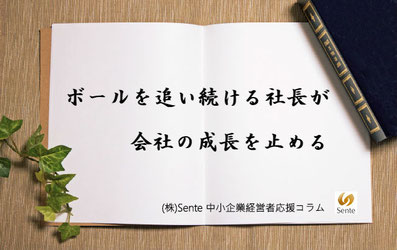 ボールを追い続ける社長が
会社の成長を止める
(株)Sente 中小企業経営者応援コラム
Sente